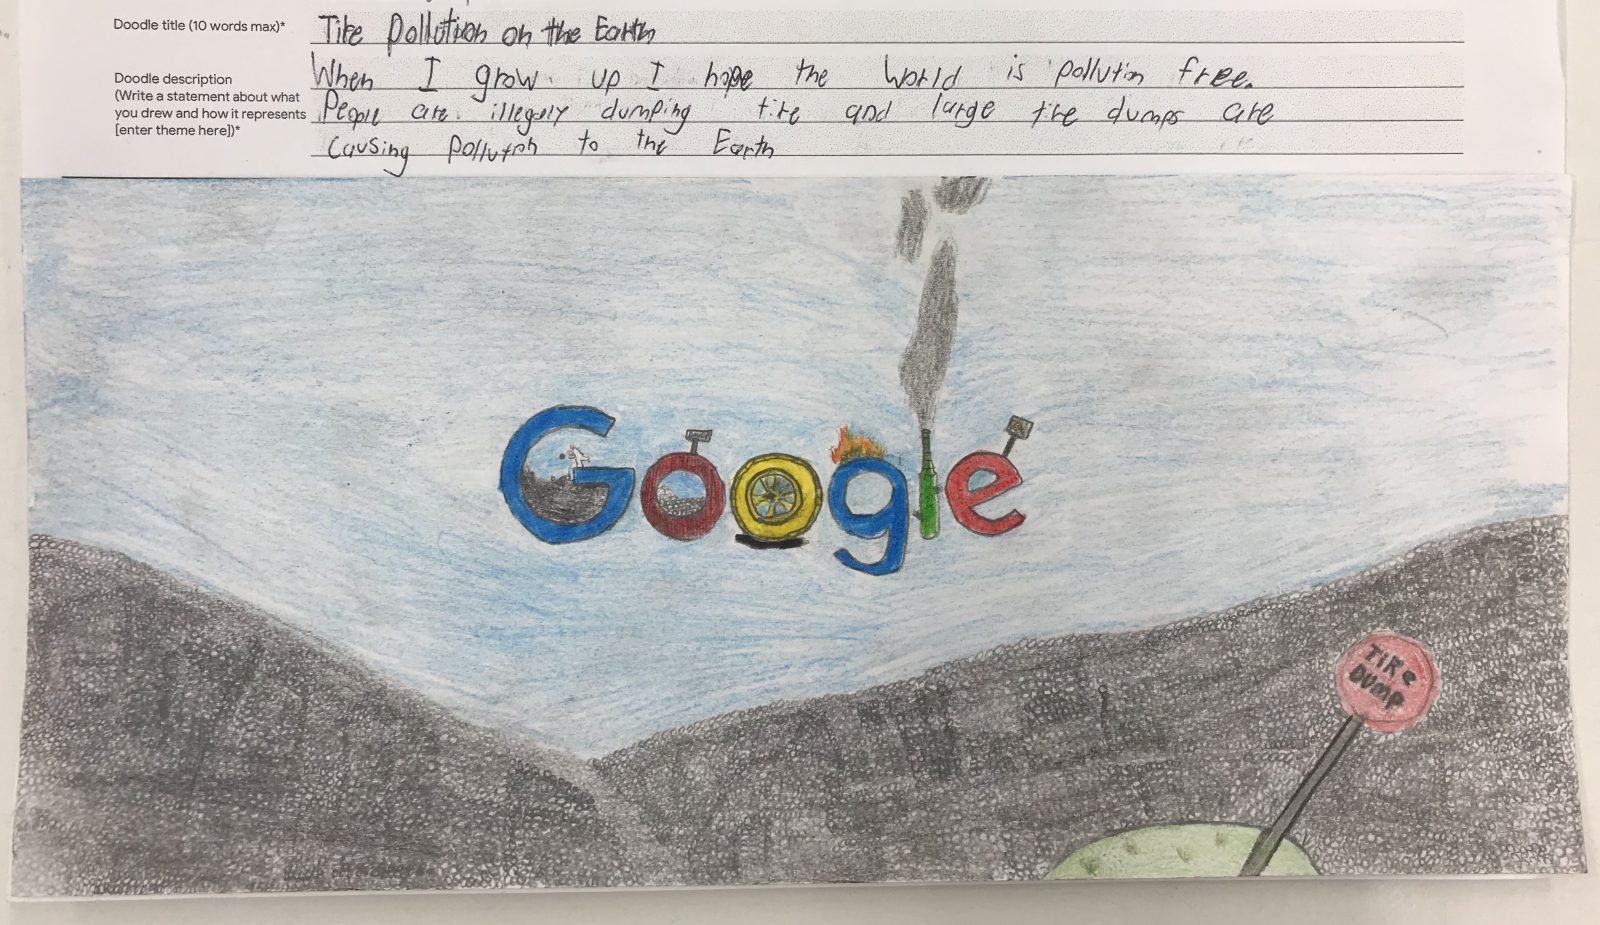 Doodle title (10 words max)*
Tire Pollution on the Earth
Doodle description
(Write a statement about what
you drew and how it represents
[enter theme here])*
When I grow up I hope the World is pollution free.
People are illegaly dumping tire and large tire dumps are
Causing pollution to the Earth
Google
TiRe
DUMP